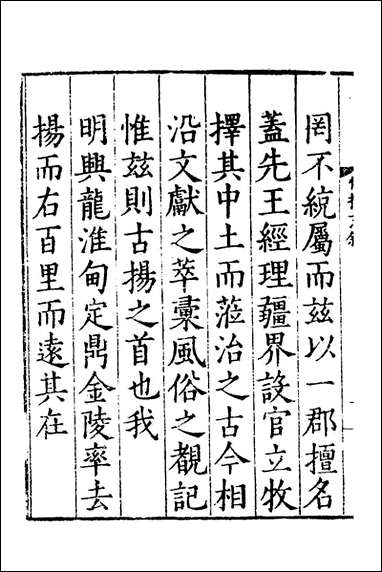 罔不統屬而茲以一郡擅名
蓋先王經理疆界設官立牧
擇其中土而蒞治之古今相
沿文獻之萃槖風俗之覩記
惟茲則古揚之首也我
明興龍淮甸定鼎金陵率去
揚而右百里而遠其在